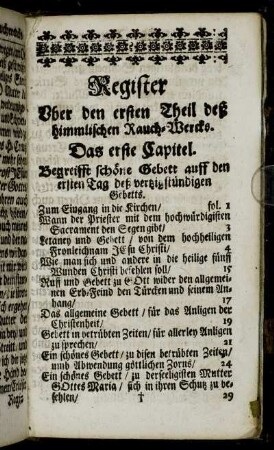 Register
Vber den ersten Theil deß
himmlischen Rauch-Wercks.
Das erste Capitel.
Begreifft schöne Gebett auff den
ersten Tag deß viertzigstündigen
Gebetts.
Zum Eingang in die Kirchen/ fol. 1
Wann der Priester mit dem hochwürdigisten
Sacrament den Segen gibt/ 3
Letaney und Gebett/ von dem hochheiligen
Fronleichnam JEsu Christi/ 4
Wie man sich und andere in die heilige fünff
Wunden Christi befehlen soll/ 15
Ruff und Gebett zu GOtt wider den allgemei-
nen Erb-Feind den Türcken und seinem An-
hang/ 17
Das allgemeine Gebett/ für das Anligen der
Christenheit/ 19
Gebett in betrübten Zeiten/ für allerley Anligen
zu sprechen/ 21
Ein schönes Gebett/ zu disen betrübten Zeiten/
und Abwendung göttlichen Zorns/ 24
Ein schönes Gebett/ zu derseeligisten Mutter
GOttes Maria/ sich in ihren Schutz zu be-
fehlen/ † 29